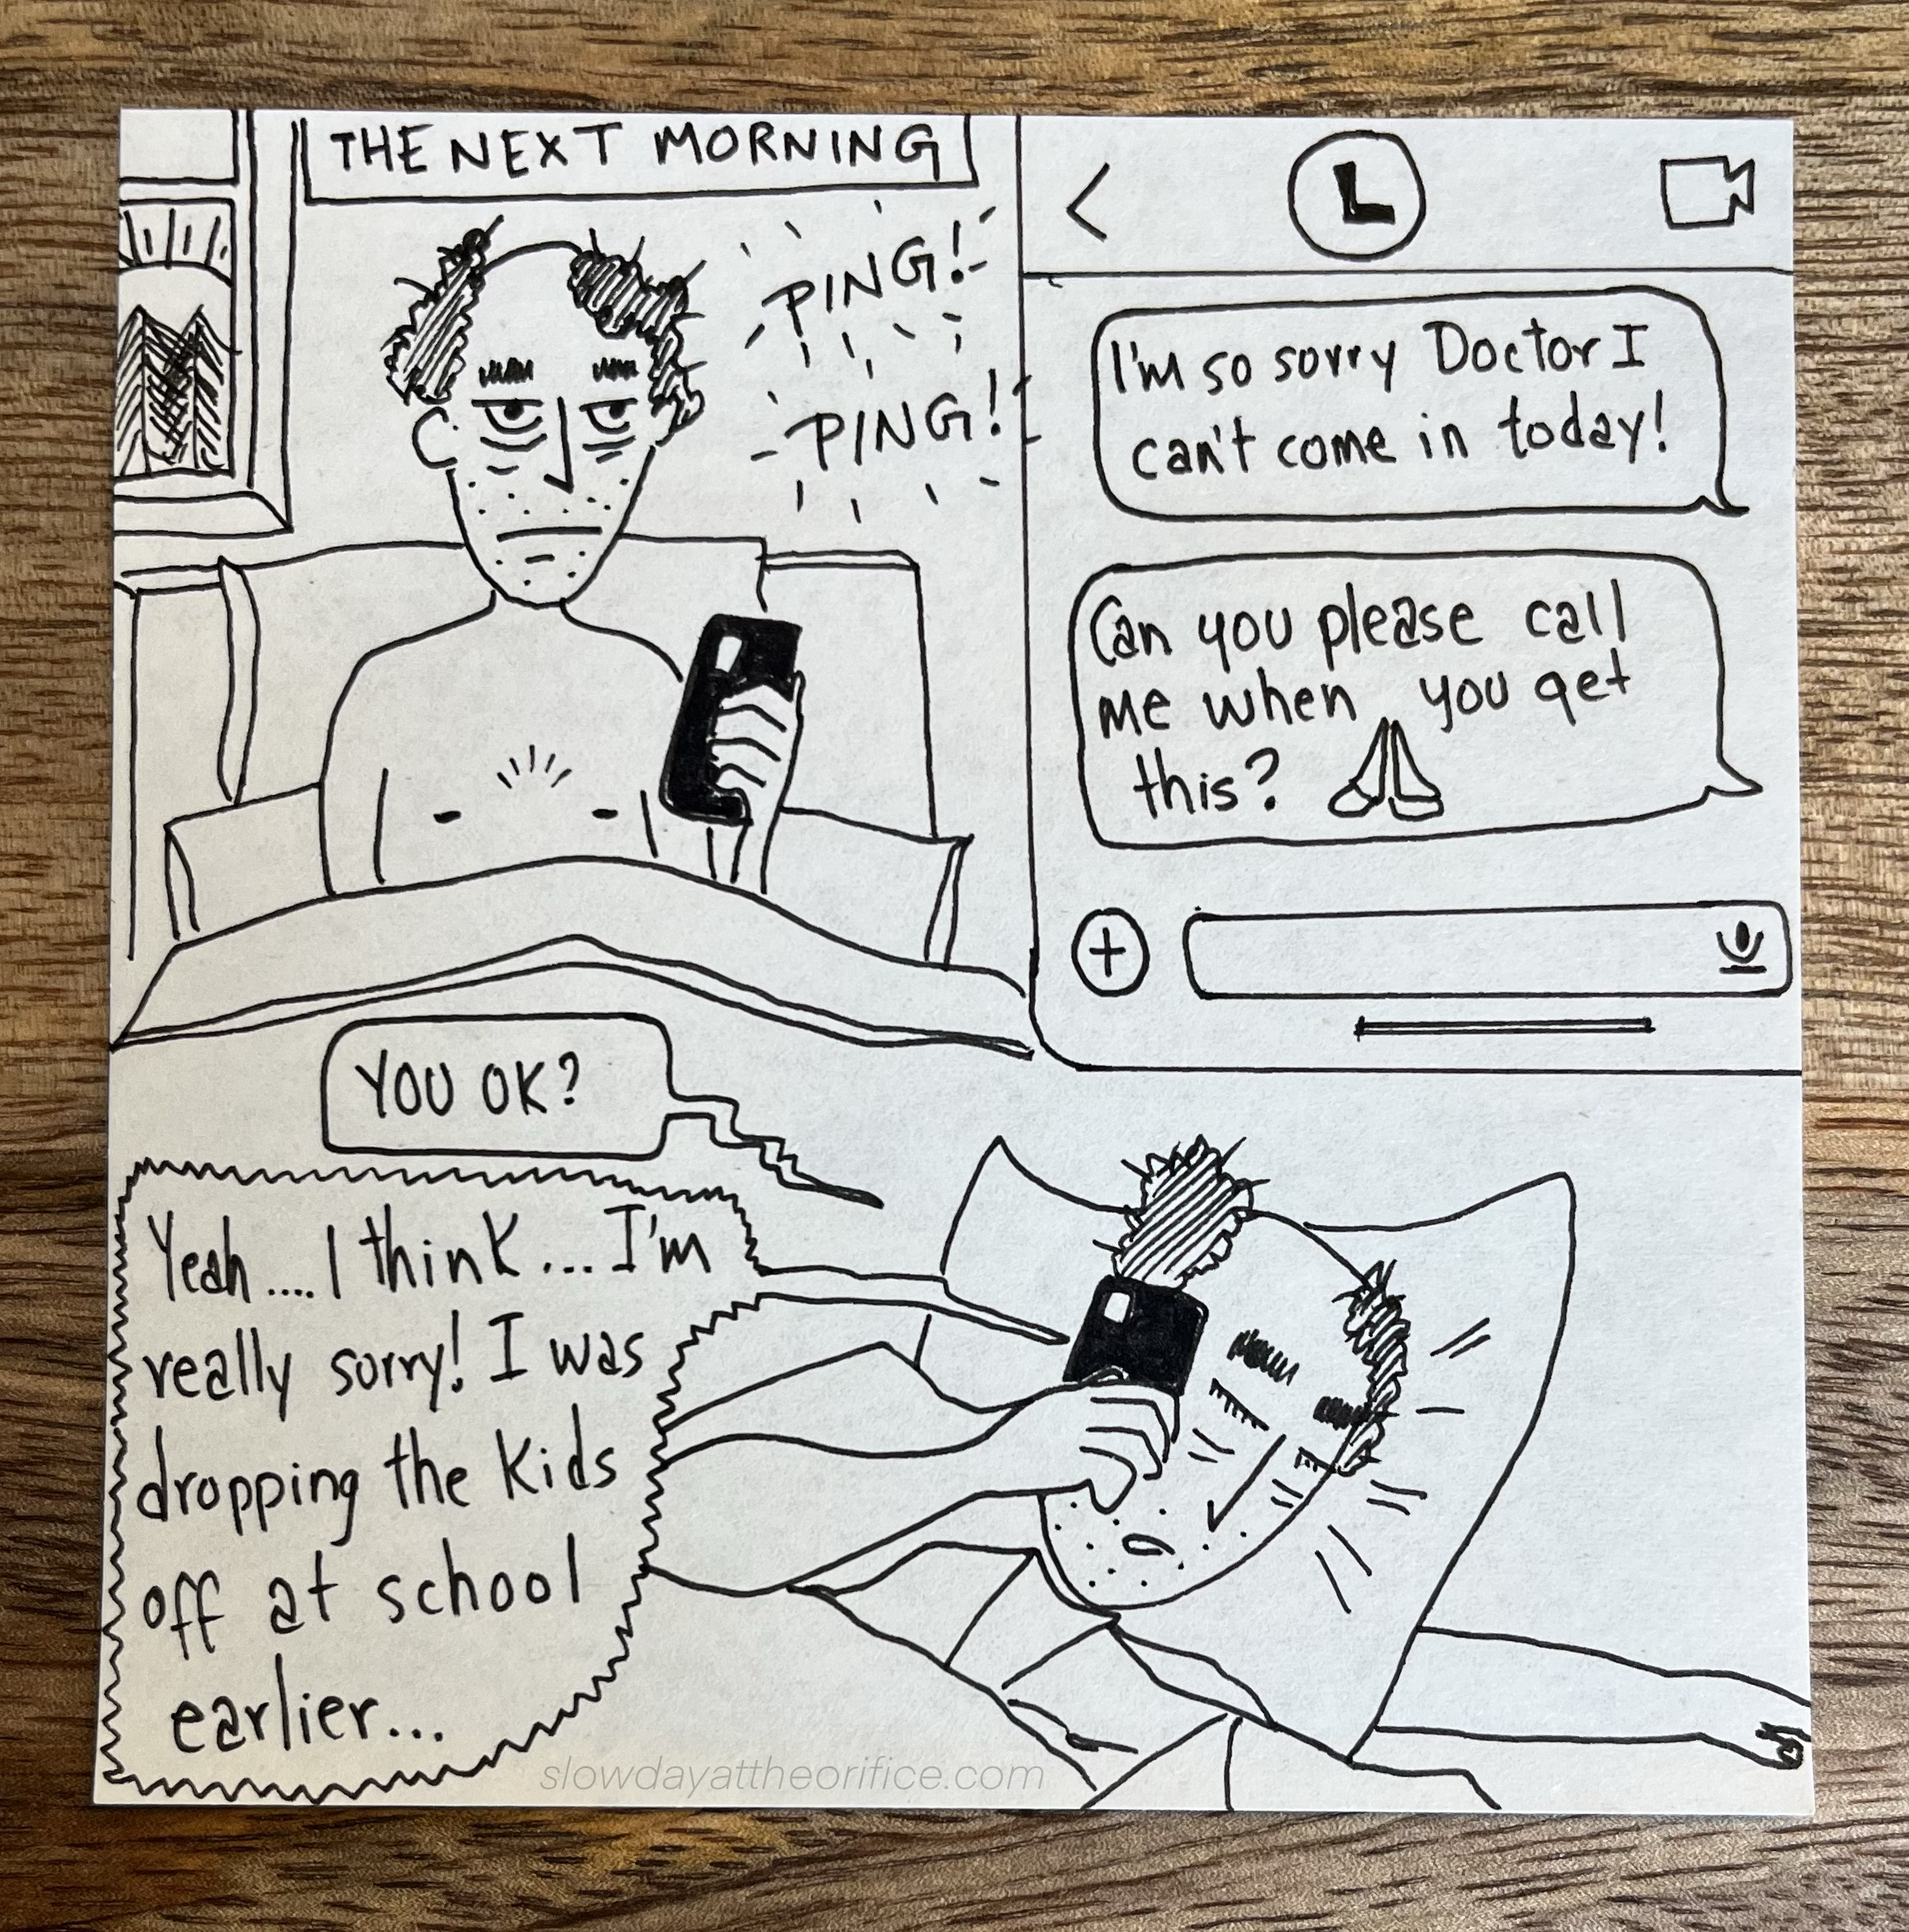 THE NEXT MORNING
PING!
PING!
<
L
I'm so sorry Doctor I
can't come in today!
Can you please call
me when you get
this? 🙏
+
YOU OK?
Yeah.... I think... I'm
really sorry! I was
dropping the kids
off at school
earlier...
slowdayattheorifice.com